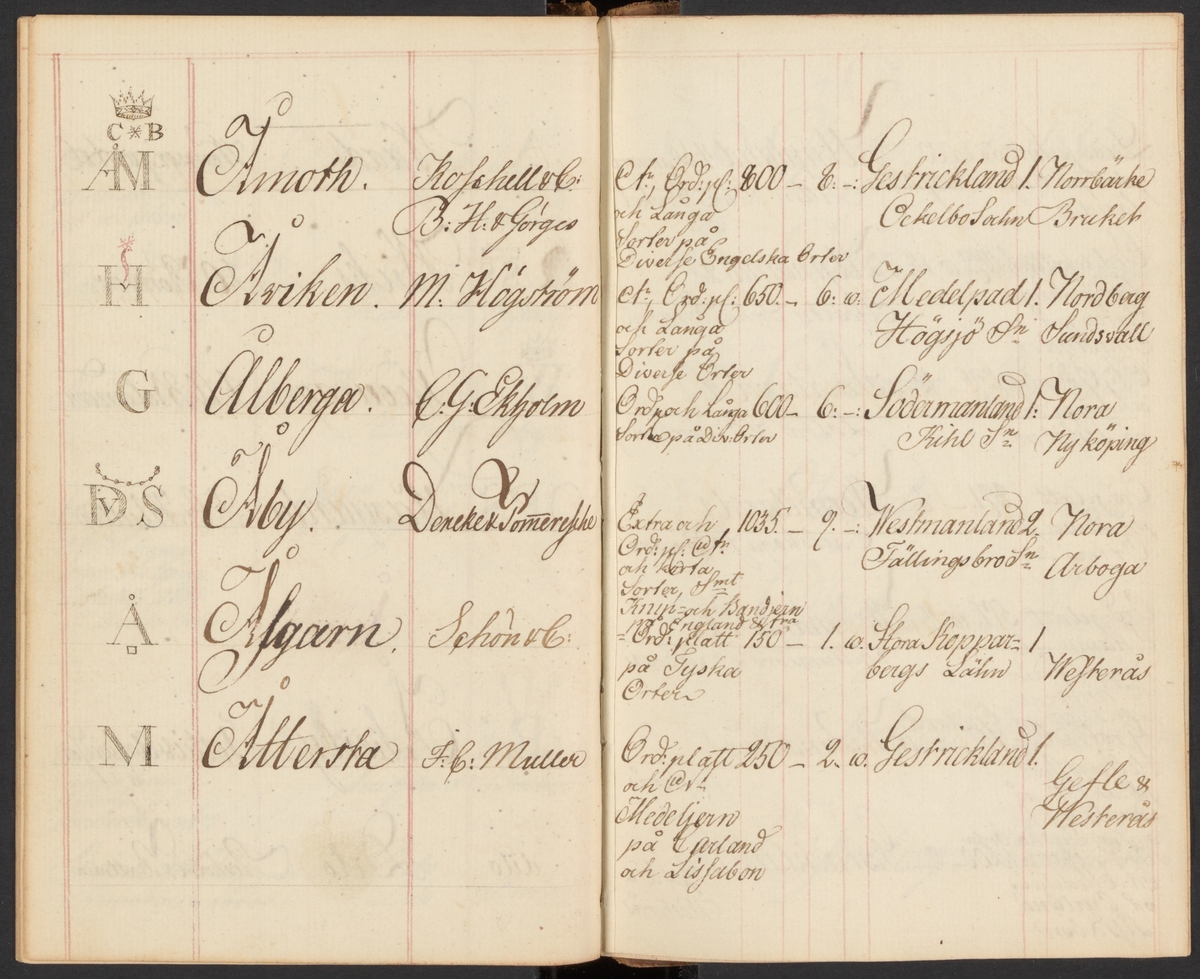 C * B
ÅM Åmoth. Koschell & C:
B: H: & Görges
Ord: pl: 800 — 8: —: Gestrickland 1. Norrbärke
och Långa Ockelbo Sochn Bruket
Sorter på
Diverse Engelska Orter
H Åviken. M: Högström Ord: pl: 650. — 6: w: Medelpad 1. Nordberg
och Långa Högsjö Sn Sundsvall
Sorter på
Diverse Orter
G Ålberga. C: G: Ekholm Ord: och Långa 600 — 6: —: Södermanland 1: Nora
Sorter på Div: Orter Kihl Sn Nyköping
DV S Åby. Deneke & Sommeresche Extra och 1035. — 9. —: Westmanland 2. Nora
Ord: pl:
och korta Fällingsbro Sn Arboga
Sorter, Smt
Knip= och Bandjern
på England &tra
Å Åsgarn. Schön & C: Ord: platt 150 — 1. w: Stora Koppar= 1
på Tyska bergs Lähn Westerås
Orter
M Åttersta F: C: Muller Ord: platt 250 — 2. w: Gestrickland 1.
och Gefle &
Medeljern Westerås
på Curland
och Lissabon